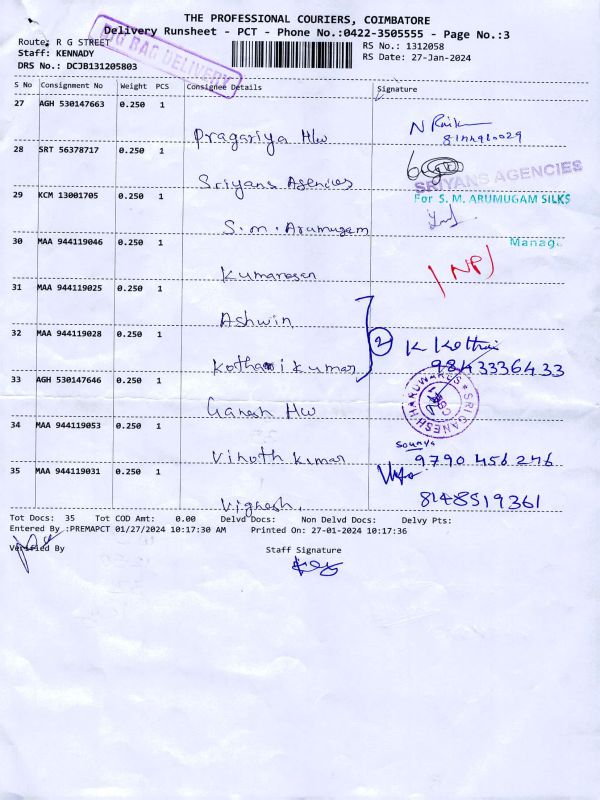 THE PROFESSIONAL COURIERS, COIMBATORE
Delivery Runsheet - PCT - Phone No.:0422-3505555 - Page No.:3
Route: R G STREET
RS No.: 1312058
Staff: KENNADY
RS Date: 27-Jan-2024
DRS No.: DCJB131205803
BAG DELIVERY
S No Consignment No Weight PCS Consignee Details Signature
27 AGH 530147663 0.250 1
Pragariya H/w
28 SRT 56378717 0.250 1
Sriyans Agencies
SRIYANS AGENCIES
29 KCM 13001705 0.250 1
For S. M. ARUMUGAM SILKS
S. M. Arumugam
30 MAA 944119046 0.250 1
Manage
Kumaresan
NP
31 MAA 944119025 0.250 1
Ashwin
2
32 MAA 944119028 0.250 1
Kothari kumar
9843336433
33 AGH 530147646 0.250 1
Ganesh H/w
SRI GANESH HARDWARES
34 MAA 944119053 0.250 1
Vinoth kumar
9790 456 246
35 MAA 944119031 0.250 1
Vignesh.
8148519361
Tot Docs: 35 Tot COD Amt: 0.00 Delvd Docs: Non Delvd Docs: Delvy Pts:
Entered By :PREMAPCT 01/27/2024 10:17:30 AM Printed On: 27-01-2024 10:17:36
Verified By
Staff Signature